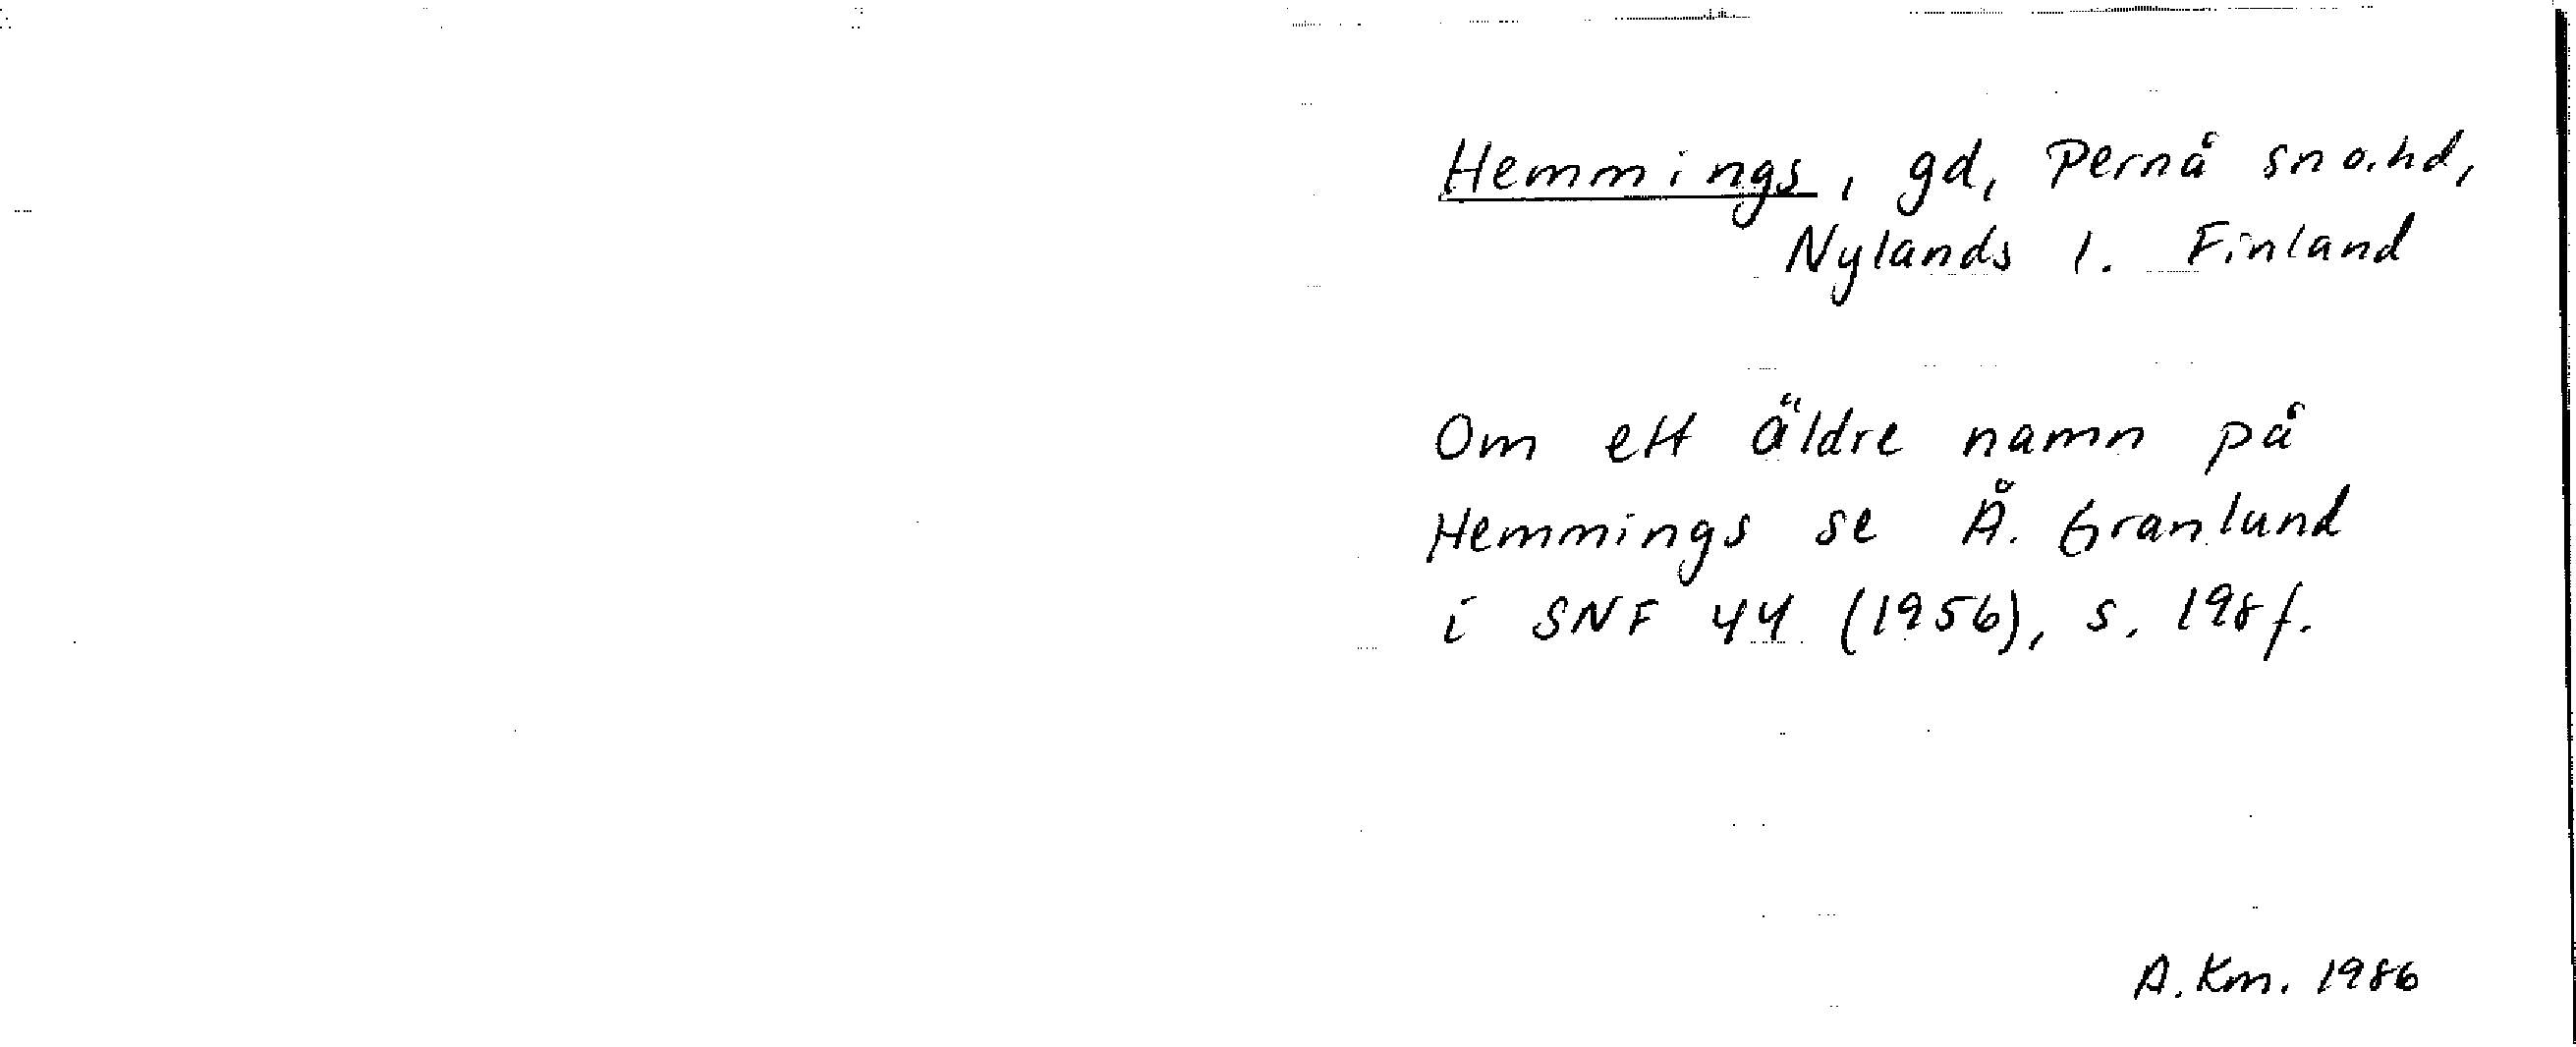 Hemmings, gd, Pernå sn o. hd,
Nylands l. Finland
Om ett äldre namn på
Hemmings se Å. Granlund
i SNF 44 (1956), s. 198 f.
A. Km. 1986